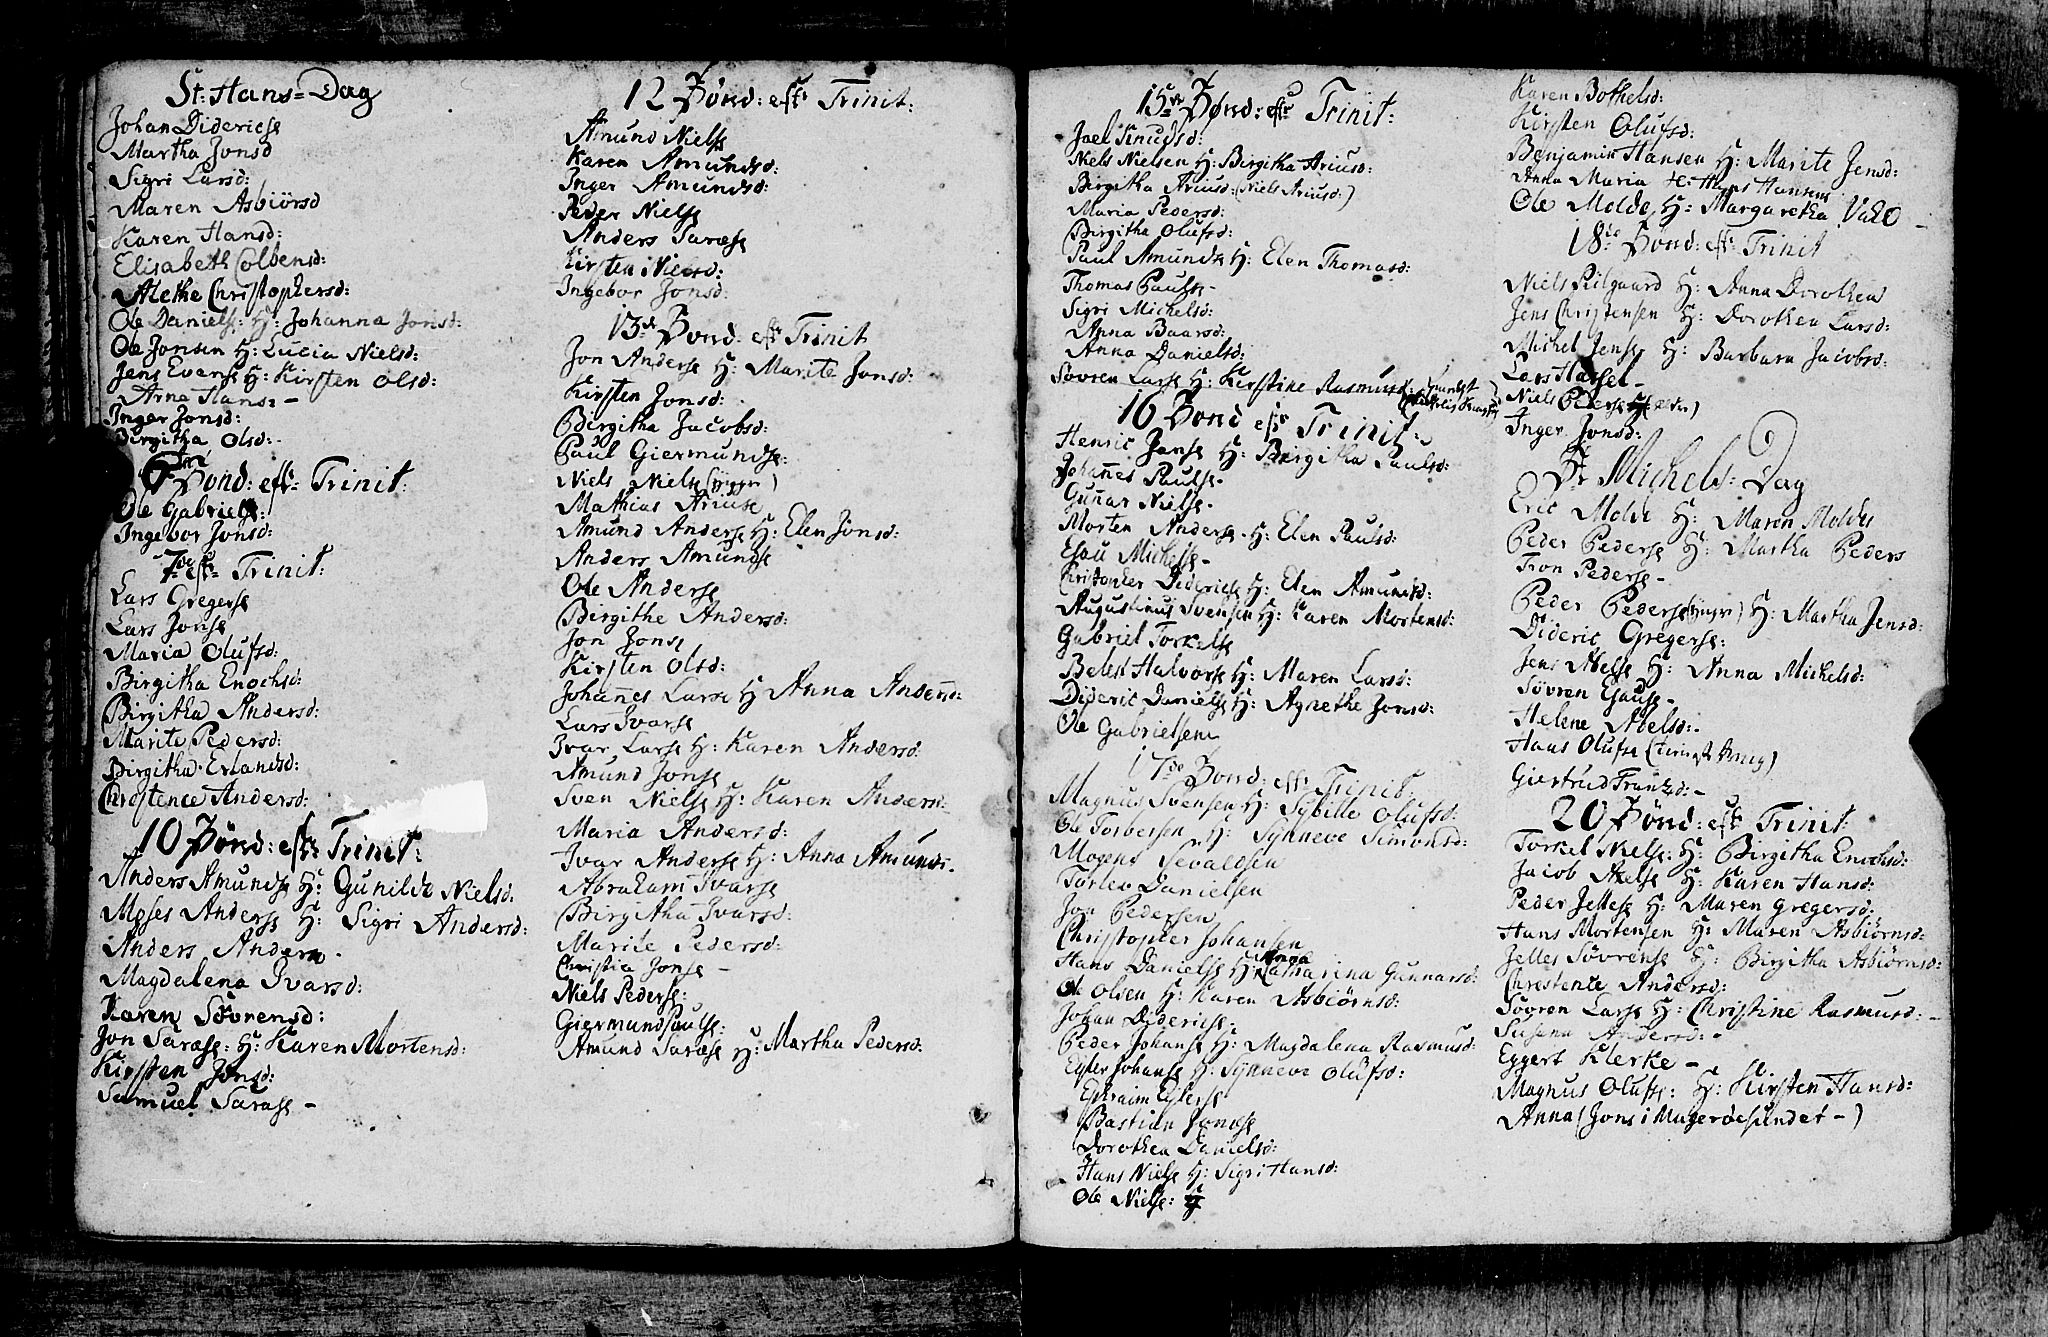 St: Hans=Dag
Johan Diderichse
Martha Jonsd
Sigri Larsd:
Maren Asbiörsd
Karen Hansd:
Elisabeth Colbensd:
Alethe Christophersd:
Ole Danielse: H: Johanna Jonsd:
Ole Jonsen H: Lucia Nielsd:
Jens Evense H: Kirsten Olsd:
Arne Hans: -
Inger Jonsd:
Birgitha Olsd:
6 Sönd: eftr Trinit:
Ole Gabrielse:
Ingebor Jonsd:
7de eftr Trinit:
Lars Gregerse
Lars Jonse
Maria Olufsd:
Birgitha Enochsd:
Birgitha Andersd:
Marite Pedersd:
Birgitha Erlandsd:
Chrestence Andersd:
10 Sönd: eftr Trinit:
Anders Amundse H: Gunilde Nielsd.
Moses Anderse H: Sigri Andersd:
Anders Andersen -
Magdalena Ivarsd:
Karen Sövrensd:
Jon Sarase: H: Karen Mortensd:
Kirsten Jonsd:
Samuel Sarase -
12 Sönd: eftr Trinit:
Amund Nielse
Karen Amundsd:
Inger Amundsd:
Peder Nielse
Anders Sarase
Kirsten Nielsd:
Ingebor Jonsd:
13de Sönd: eftr Trinit
Jon Anderse H: Marite Jonsd:
Kirsten Jonsd:
Birgitha Jacobsd:
Paul Giermundse:
Niels Nielse (yngr)
Mathias Ariuse
Amund Anderse H: Elen Jonsd:
Anders Amundse
Ole Anderse
Birgithe Andersd:
Jon Jonse
Kirsten Olsd:
Johañes Larse H Anna Andersd:
Lars Ivarse
Ivar Larse H: Karen Andersd:
Amund Jonse
Sven Nielse H: Karen Andersd:
Maria Andersd:
Ivar Anderse H: Anna Amunds.
Abraham Ivarse
Birgitha Ivarsd:
Marite Pedersd:
Christia Jonse -
Niels Pederse:
Giermund Paulse:
Amund Sarase H: Martha Pedersd:
15de Sönd: eftr Trinit:
Jael Knudsd:
Niels Nielsen H: Birgitha Ariusd:
Birgitha Ariusd: (Niels Ariusd:)
Maria Pedersd:
Birgitha Olufsd:
Paul Amundse H: Elen Thomasd:
Thomas Paulse -
Sigri Michelsd:
Anna Baarsd:
Anna Danielsd:
Sövren Larse H: Kirstine Rasmusd:
16 Sönd eftr Trinit:
Henric Janse H: Birgitha Paulsd:
Johañes Paulse -
Guñar Nielse -
Morten Anderse. H: Elen Paulsd:
Esau Michelse -
Christopher Diderichse H: Elen Amundsd:
Augustinus Svensen H: Karen Mortensd:
Gabriel Torkelse
Belest Halvorse H: Maren Larsd:
Dideric Danielse H: Agnethe Jonsd:
Ole Gabrielsen
17de Sönd: eftr Trinit:
Magnus Svensen H: Sybille Olufsd:
Ole Torbersen H: Synneve Simonsd:
Mogens Sevaldsen
Torlev Danielsen
Jon Pedersen
Christopher Johansen
Anna
Hans Danielse H: Catharina Gunnarsd:
Ole Olsen H: Karen Asbiörnsd:
Johan Diderichse -
Peder Johanse H: Magdalena Rasmusd:
Eyler Johanse H: Synneve Olufsd:
Ephraim Eylerse
Bastian Jonase
Dorothea Danielsd:
Hans Nielse H: Sigri Hansd:
Ole Nielse: H
Karen Bothelsd:
Kirsten Olufsd:
Benjamin Hansen H: Marite Jensd:
Anna Maria H: Hans Hansens
Ole Molde H: Margaretha Vahl
18de Sönd: eftr Trinit
Niels Pilgaard H: Anna Dorothea
Jens Christensen H: Dorothea Larsd:
Michel Jense H: Barbara Jacobsd:
Lars Hassel -
Niels Pederse
Inger Jonsd:
St Michels: Dag
Eric Molde H: Maren Moldes
Peder Pederse H: Martha Peders
Tron Pederse -
Peder Pederse (yngr) H: Martha Jensd:
Dideric Gregerse:
Jens Abelse H: Anna Michelsd:
Sövren Esause -
Helene Abelsd: -
Hans Olufse
Giertrud Frantzd: -
20 Sönd: eftr Trinit:
Torkel Nielse: H: Birgitha Enochsd:
Jacob Axelse H: Karen Hansd:
Peder Jellese H: Maren Gregersd:
Hans Mortensen H: Maren Asbiörnsd:
Jelles Sövrense H: Birgitha Asbiörnsd:
Chrestence Andersd:
Sövren Larse H: Christine Rasmusd: -
Susana Andersd: -
Eggert Klerke -
Magnus Olufse: H: Kirsten Hansd:
Anna (Jons i Magerøesundet -)